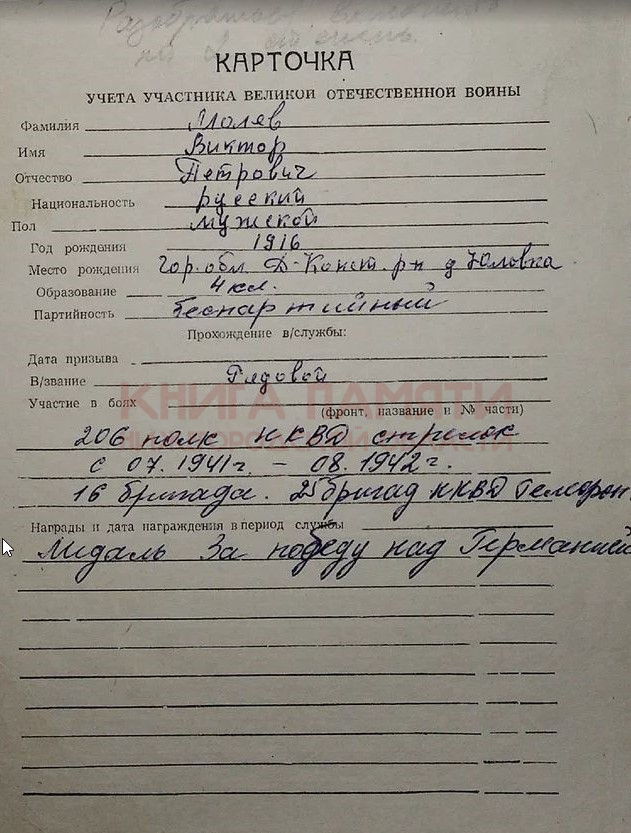 Разобраться
КАРТОЧКА
УЧЕТА УЧАСТНИКА ВЕЛИКОЙ ОТЕЧЕСТВЕННОЙ ВОЙНЫ
Фамилия Моляв
Имя Виктор
Отчество Петрович
Национальность русский
Пол мужской
Год рождения 1916
Место рождения Гор. обл. Д-Конст. р-н д Юловка
Образование 4 кл.
Партийность беспартийный
Прохождение в/службы:
Дата призыва
В/звание Рядовой
Участие в боях
КНИГА ПАМЯТИ
(фронт, название и № части)
206 полк НКВД стрелок
НИЖЕГОРОДСКОЙ ОБЛАСТИ
с 07. 1941 г. – 08. 1942 г.
16 бригада. 25 бригад НКВД
Награды и дата награждения в период службы
Медаль За победу над Германией